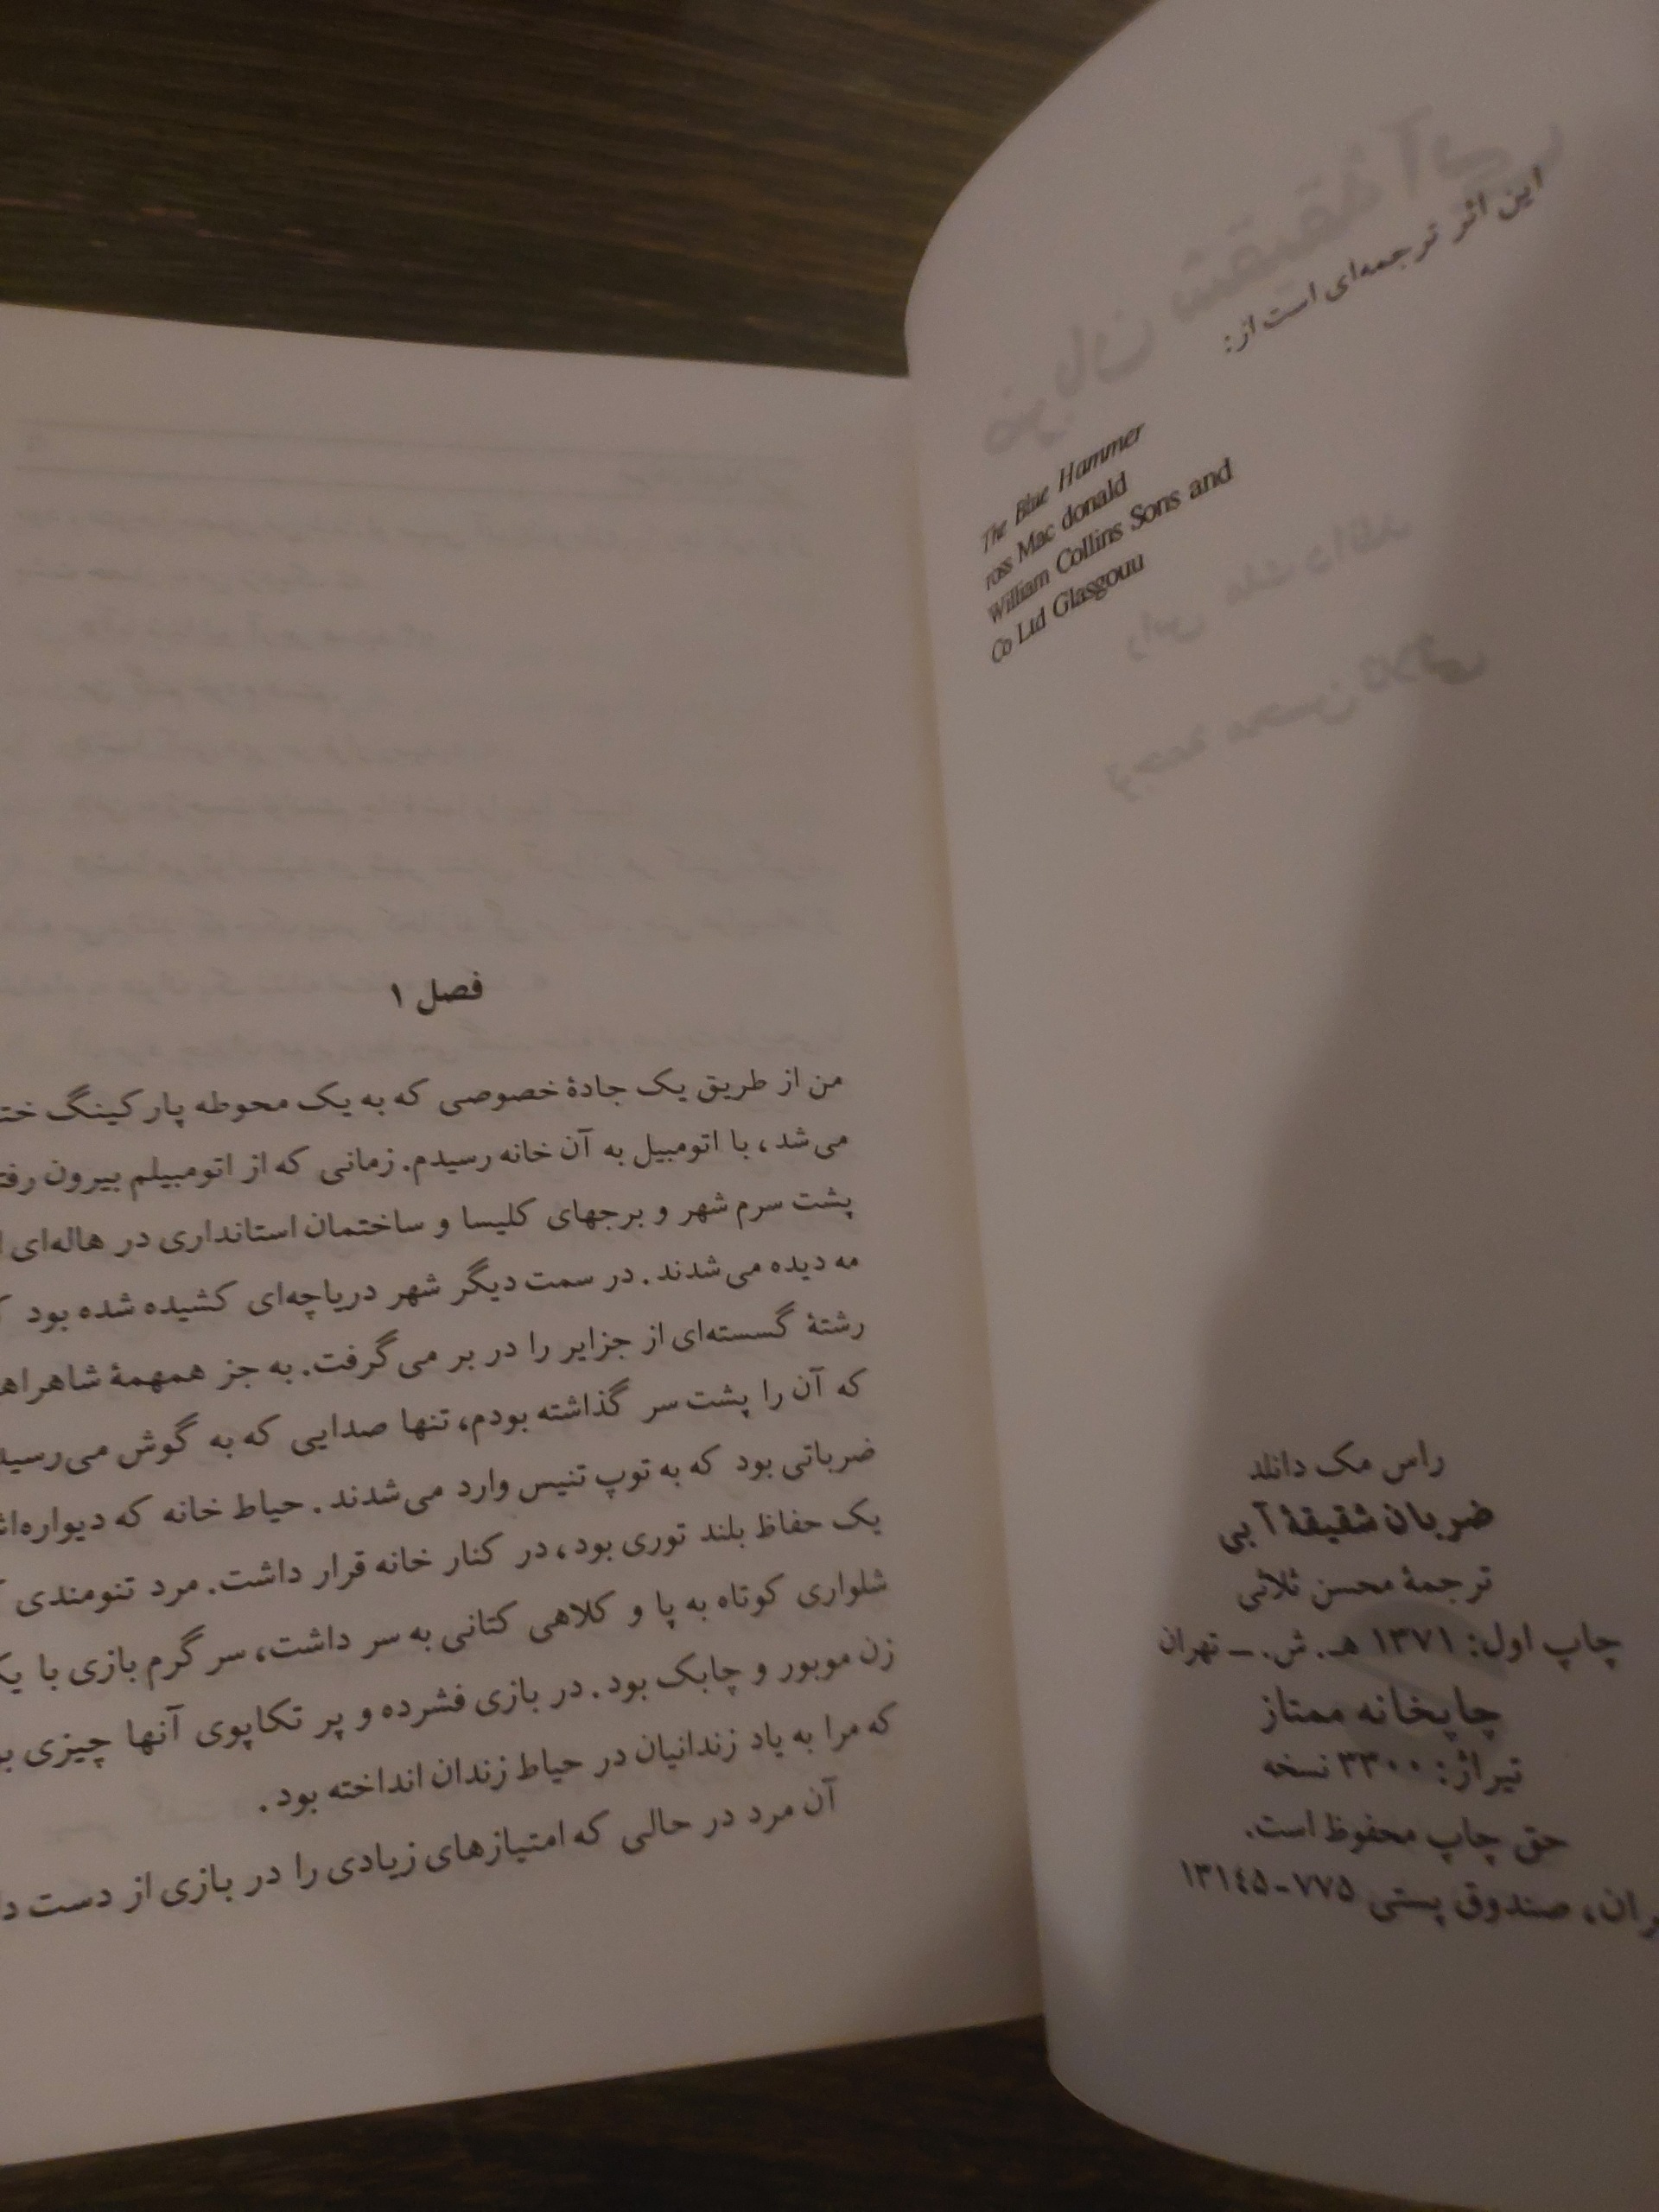 این اثر ترجمه‌ای است از:
The Blue Hammer
ross Mac donald
William Collins Sons and
Co Ltd Glasgouu
راس مک دانلد
ضربان شقیقهٔ آبی
ترجمهٔ محسن ثلاثی
چاپ اول: ۱۳۷۱ هـ. ش. ــ تهران
چاپخانه ممتاز
تیراژ: ۳۳۰۰ نسخه
حق چاپ محفوظ است.
صندوق پستی ۷۷۵-۱۳۱۴۵
فصل ۱
من از طریق یک جادهٔ خصوصی که به یک محوطه پارکینگ
می‌شد، با اتومبیل به آن خانه رسیدم. زمانی که از اتومبیلم بیرون
پشت سرم شهر و برجهای کلیسا و ساختمان استانداری در هاله‌ای
مه دیده می‌شدند. در سمت دیگر شهر دریاچه‌ای کشیده شده بود
رشتهٔ گسسته‌ای از جزایر را در بر می‌گرفت. به جز همهمهٔ
که آن را پشت سر گذاشته بودم، تنها صدایی که به گوش
ضرباتی بود که به توپ تنیس وارد می‌شدند. حیاط خانه که
یک حفاظ بلند توری بود، در کنار خانه قرار داشت. مرد تنومندی
شلواری کوتاه به پا و کلاهی کتانی به سر داشت، سر گرم بازی با
زن موبور و چابک بود. در بازی فشرده و پر تکاپوی آنها چیزی
که مرا به یاد زندانیان در حیاط زندان انداخته بود.
آن مرد در حالی که امتیازهای زیادی را در بازی از دست